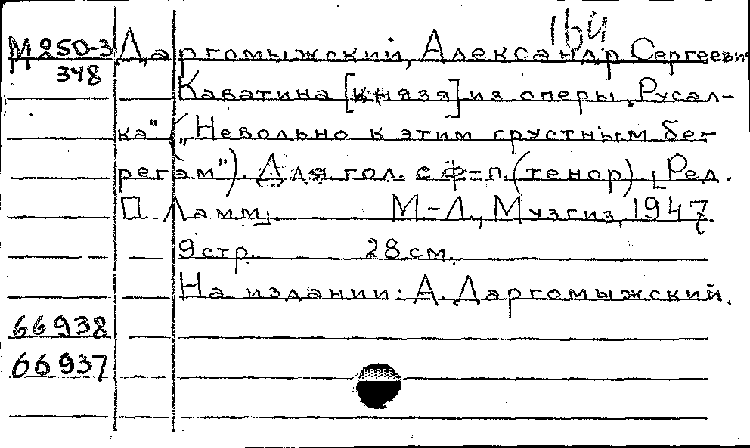 164
М 250-3 Даргомыжский, Александр Сергеевич
348 Каватина [князя] из оперы „Русал-
ка" („Невольно к этим грустным бе-
регам"). Для гол. с ф-п. (тенор) [Ред.
П. Ламм]. М-Л., Музгиз, 1947
9 стр. 28 см.
На издании: А. Даргомыжский.
66938
66937